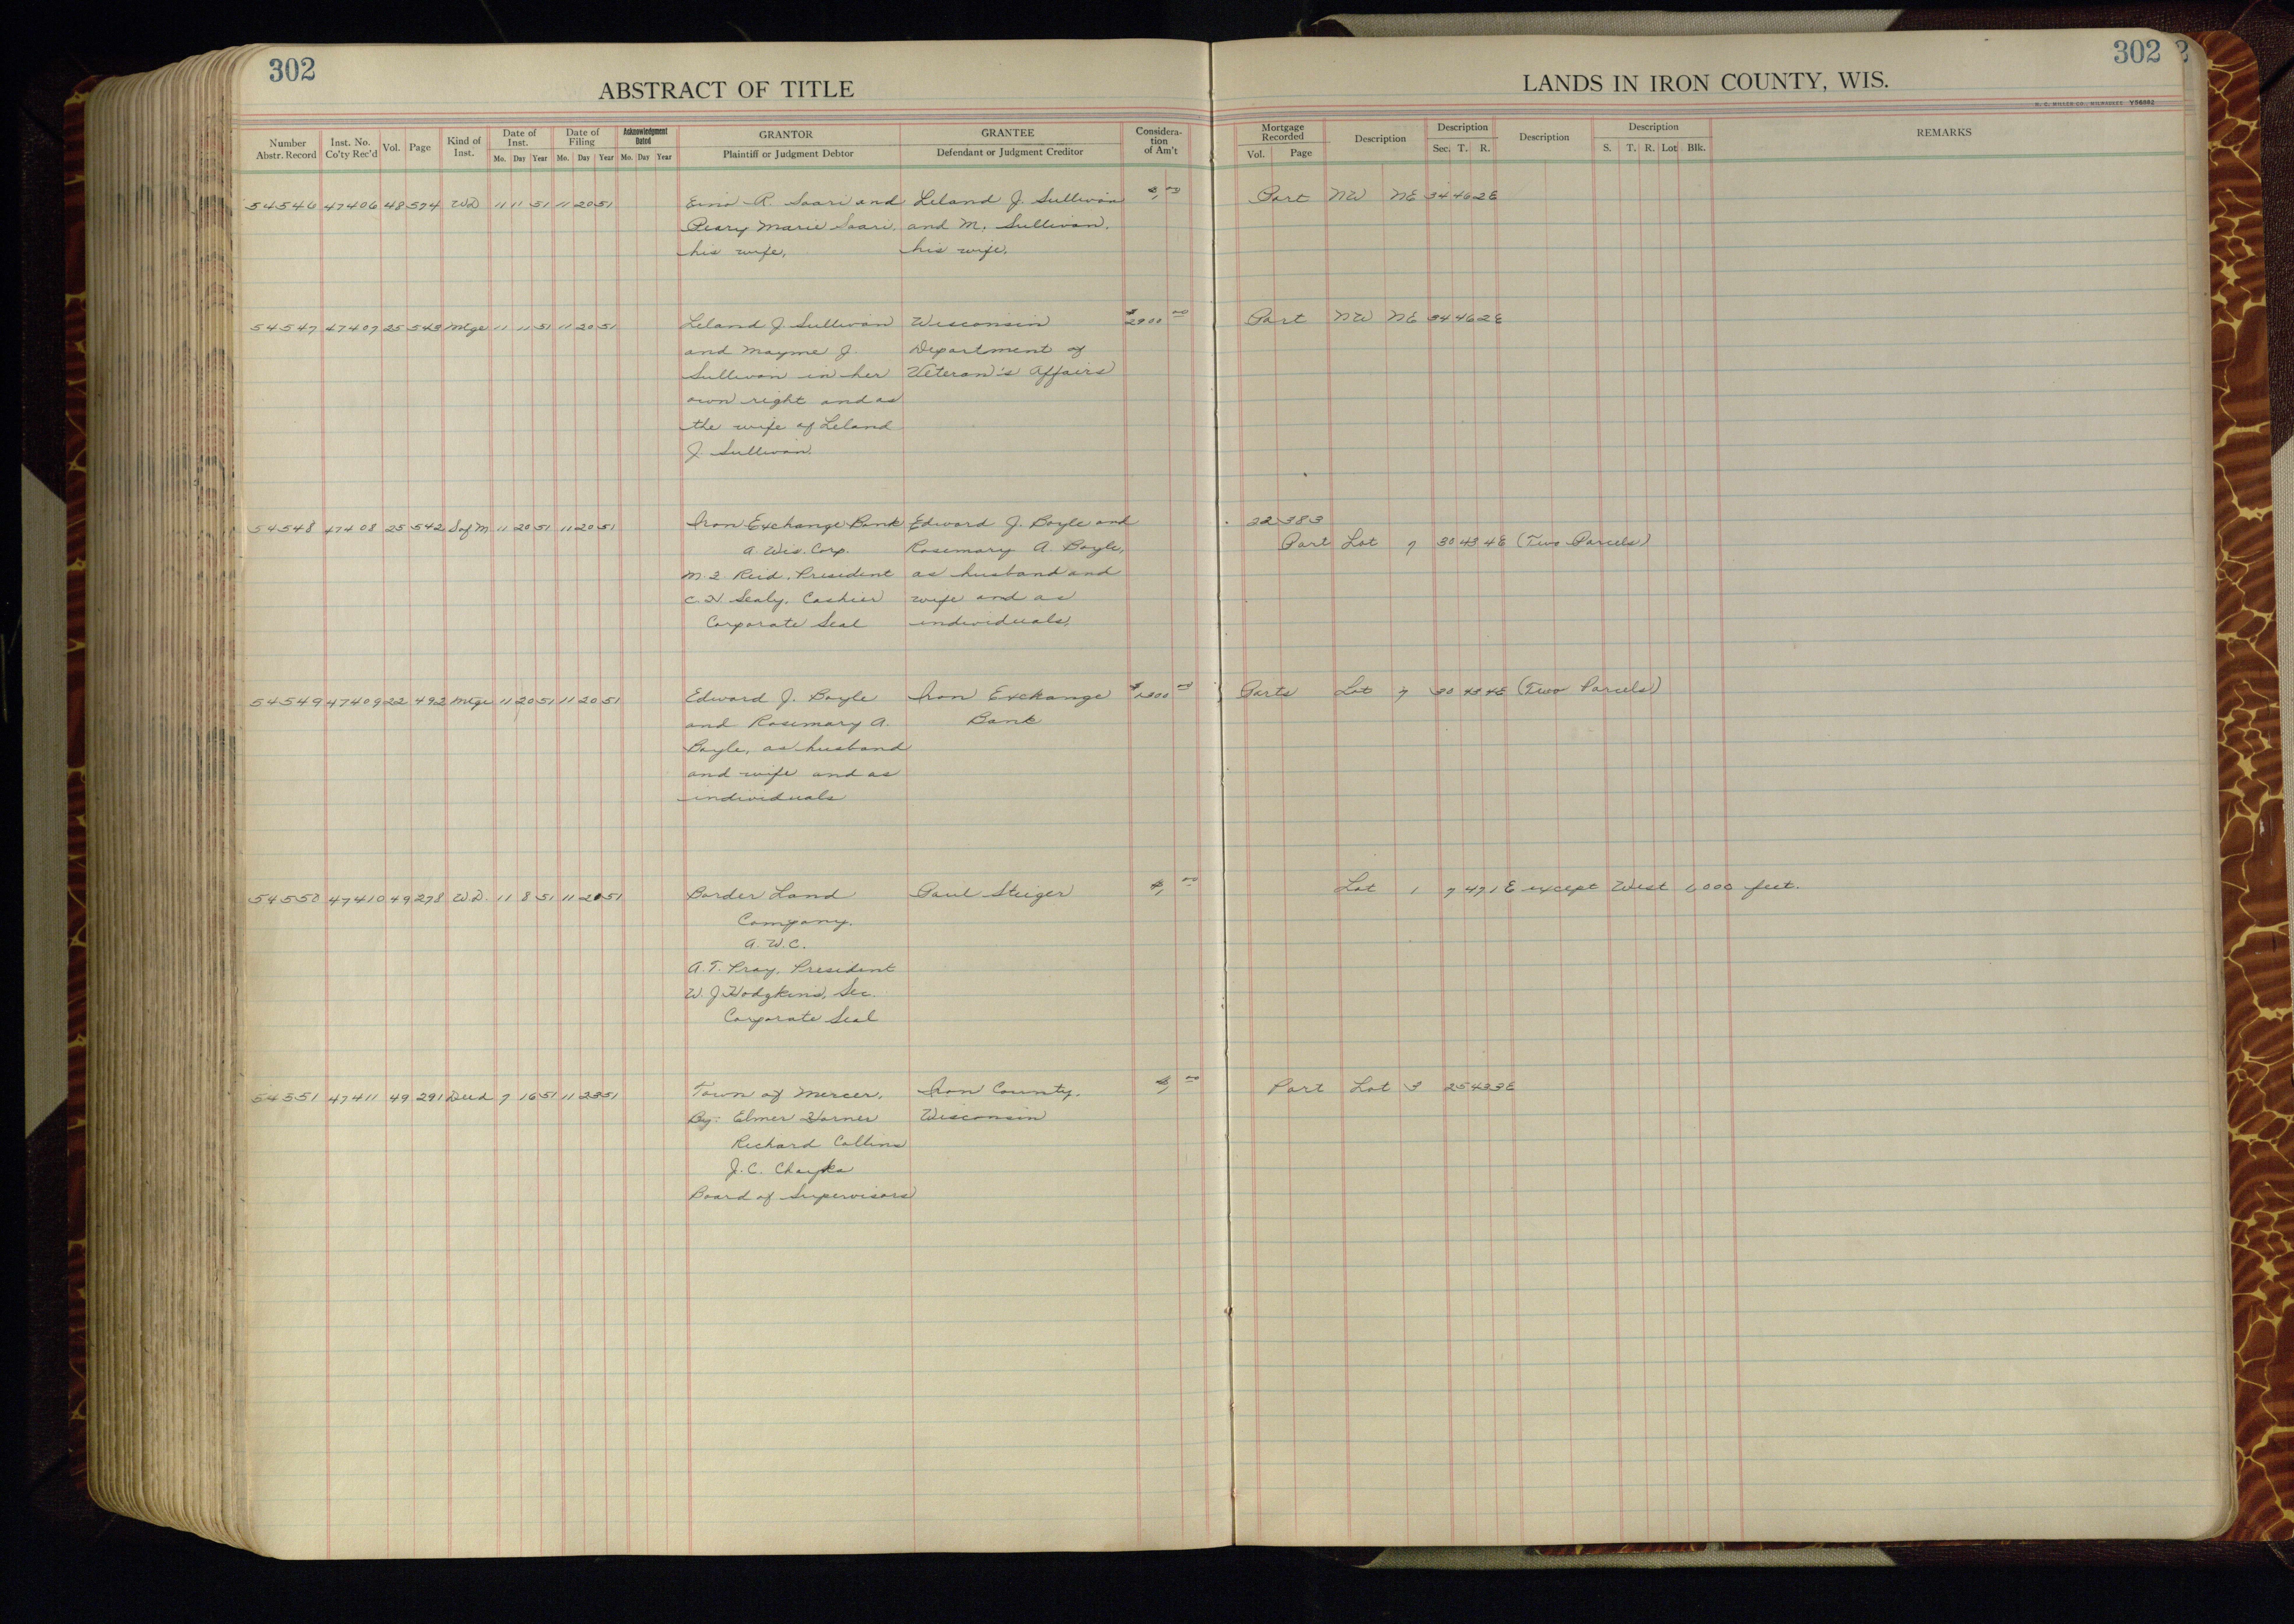 302
ABSTRACT OF TITLE
Number Abstr. Record | Inst. No. Co'ty Rec'd | Vol. | Page | Kind of Inst. | Date of Inst. Mo. Day Year | Date of Filing Mo. Day Year | Acknowledgment Dated Mo. Day Year | GRANTOR Plaintiff or Judgment Debtor | GRANTEE Defendant or Judgment Creditor | Consideration of Am't
302
LANDS IN IRON COUNTY, WIS.
H. C. MILLER CO., MILWAUKEE Y56882
Mortgage Recorded Vol. Page | Description | Description Sec. T. R. | Description | Description S. T. R. Lot Blk. | REMARKS
54546 47406 48 574 WD 11 11 51 11 20 51 Eino R. Saari and Leland J. Sullivan $1 00 Part NW NE 34 46 2E
Peary Marie Saari, and M. Sullivan,
his wife, his wife.
54547 47407 25 543 Mtge 11 11 51 11 20 51 Leland J Sullivan Wisconsin $2900 00 Part NW NE 34 46 2E
and Mayme J. Department of
Sullivan in her Veteran's Affairs
own right and as
the wife of Leland
J. Sullivan.
54548 47408 25 542 S of M 11 20 51 11 20 51 Iron Exchange Bank Edward J. Boyle and 22 383
A. Wis. Corp. Rosemary A. Boyle, Part Lot 7 30 43 4E (Two Parcels)
Reid, President as husband and
Sealy, Cashier wife and as
Corporate Seal individuals.
54549 47409 22 492 Mtge 11 20 51 11 20 51 Edward J. Boyle Iron Exchange Parts Lot 7 30 43 4E (Two Parcels)
and Rosemary A. Bank
Boyle, as husband
and wife and as
individuals
54550 47410 49 278 W.D. 11 8 51 11 20 51 Border Land Paul Steiger $1 00 Lot 1 7 47 1E except West 1,000 feet.
Company.
A. W. C.
A. T. Pray, President
W. J. Hodgkins, Sec.
Corporate Seal
54551 47411 49 291 Deed 7 16 51 11 23 51 Town of Mercer, Iron County, $1 00 Part Lot 3 25 43 3E
By: Elmer Horner Wisconsin
Richard Collins
J. C. Chayka
Board of Supervisors